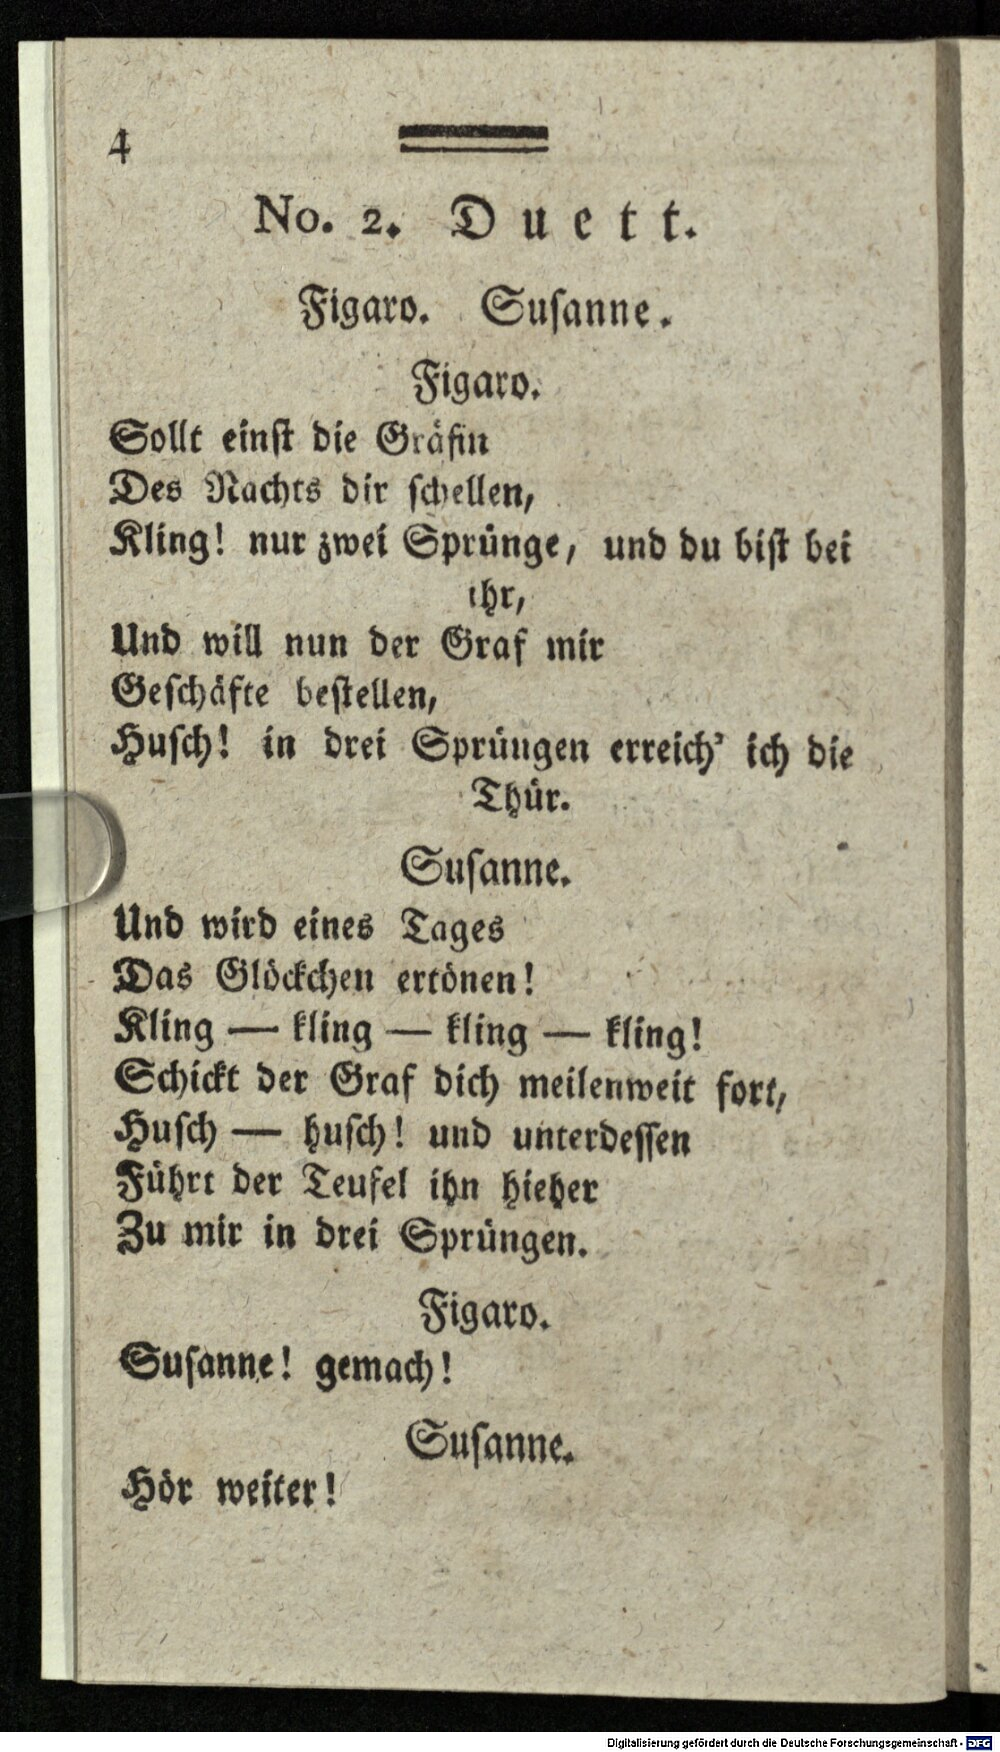 4
No. 2. Duett.
Figaro. Susanne.
Figaro.
Sollt einſt die Gräfin
Des Nachts dir ſchellen,
Kling! nur zwei Sprünge, und du biſt bei
ihr,
Und will nun der Graf mir
Geſchäfte beſtellen,
Huſch! in drei Sprüngen erreich' ich die
Thür.
Suſanne.
Und wird eines Tages
Das Glöckchen ertönen!
Kling — kling — kling — kling!
Schickt der Graf dich meilenweit fort,
Huſch — huſch! und unterdeſſen
Führt der Teufel ihn hieher
Zu mir in drei Sprüngen.
Figaro.
Suſanne! gemach!
Suſanne.
Hör weiter!
Digitalisierung gefördert durch die Deutsche Forschungsgemeinschaft - DFG